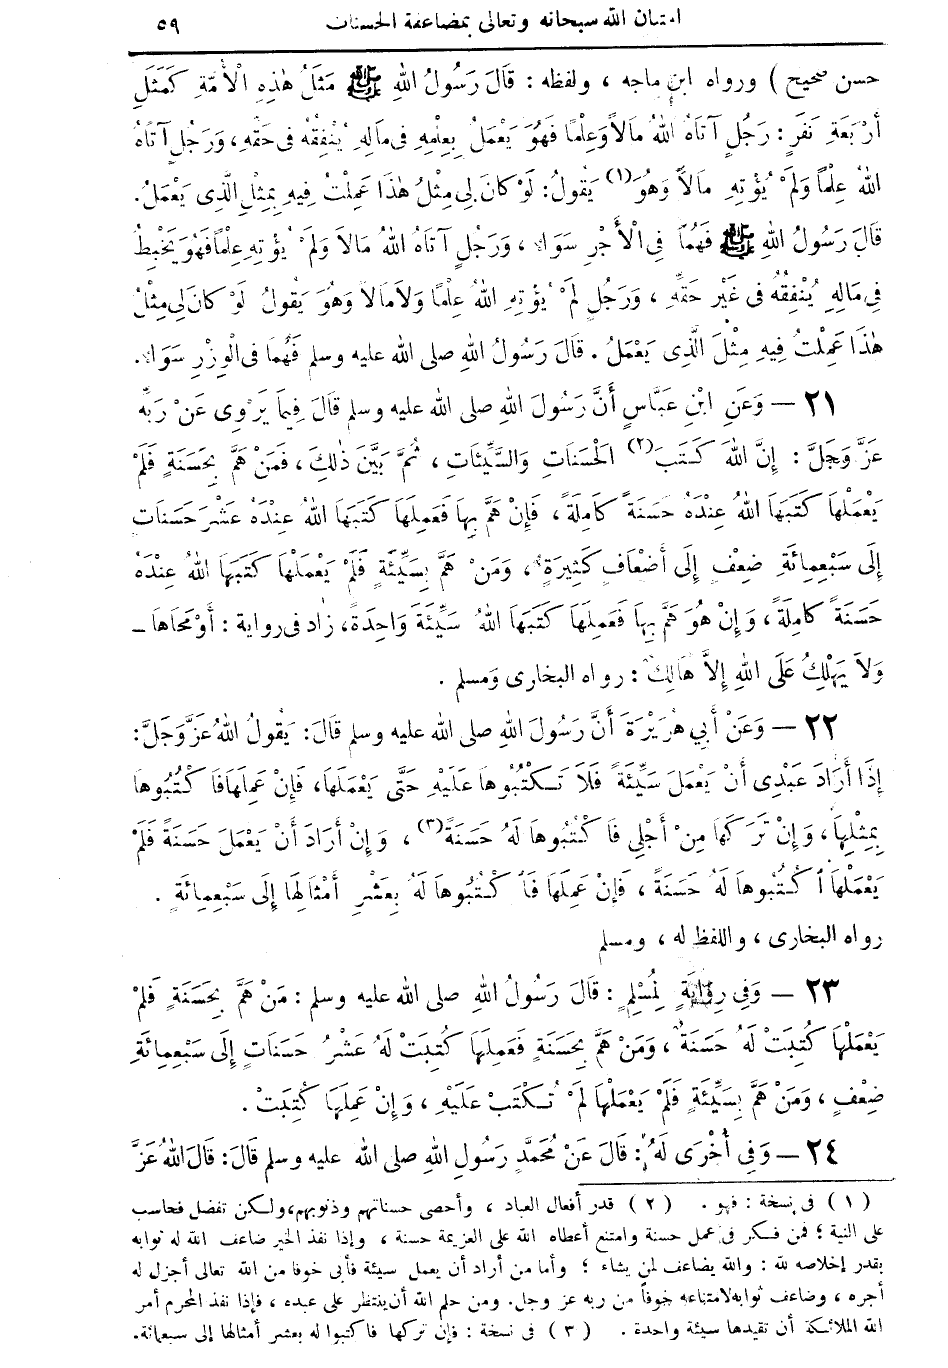 امتنان الله سبحانه وتعالى بمضاعفة الحسنات ٥٩
حسن صحيح ) ورواه ابن ماجه ، ولفظه : قَالَ رَسُولُ اللهِ ﷺ مَثَلُ هٰذِهِ الْأُمَّةِ كَمَثَلِ
أَرْبَعَةِ نَفَرٍ : رَجُلٍ آتَاهُ اللهُ مَالاً وَعِلْمًا فَهُوَ يَعْمَلُ بِعِلْمِهِ فِى مَالِهِ يُنْفِقُهُ فِى حَقِّهِ ، وَرَجُلٍ آتَاهُ
اللهُ عِلْمًا وَلَمْ يُؤْتِهِ مَالاً وَهُوَ (١) يَقُولُ : لَوْ كَانَ لِى مِثْلُ هٰذَا عَمِلْتُ فِيهِ بِمِثْلِ الَّذِى يَعْمَلُ .
قَالَ رَسُولُ اللهِ ﷺ فَهُمَا فِى الْأَجْرِ سَوَاءٌ ، وَرَجُلٍ آتَاهُ اللهُ مَالاً وَلَمْ يُؤْتِهِ عِلْمًا فَهُوَ يَخْبِطُ
فِى مَالِهِ يُنْفِقُهُ فِى غَيْرِ حَقِّهِ ، وَرَجُلٍ لَمْ يُؤْتِهِ اللهُ عِلْمًا وَلَا مَالاً وَهُوَ يَقُولُ لَوْ كَانَ لِى مِثْلُ
هٰذَا عَمِلْتُ فِيهِ مِثْلَ الَّذِى يَعْمَلُ . قَالَ رَسُولُ اللهِ صلى الله عليه وسلم فَهُمَا فِى الْوِزْرِ سَوَاءٌ .
٢١ — وَعَنِ ابْنِ عَبَّاسٍ أَنَّ رَسُولَ اللهِ صلى الله عليه وسلم قَالَ فِيمَا يَرْوِى عَنْ رَبِّهِ
عَزَّ وَجَلَّ : إِنَّ اللهَ كَتَبَ (٢) الْحَسَنَاتِ وَالسَّيِّئَاتِ ، ثُمَّ بَيَّنَ ذٰلِكَ ، فَمَنْ هَمَّ بِحَسَنَةٍ فَلَمْ
يَعْمَلْهَا كَتَبَهَا اللهُ عِنْدَهُ حَسَنَةً كَامِلَةً ، فَإِنْ هَمَّ بِهَا فَعَمِلَهَا كَتَبَهَا اللهُ عِنْدَهُ عَشْرَ حَسَنَاتٍ
إِلَى سَبْعِمِائَةِ ضِعْفٍ إِلَى أَضْعَافٍ كَثِيرَةٍ ، وَمَنْ هَمَّ بِسَيِّئَةٍ فَلَمْ يَعْمَلْهَا كَتَبَهَا اللهُ عِنْدَهُ
حَسَنَةً كَامِلَةً ، وَإِنْ هُوَ هَمَّ بِهَا فَعَمِلَهَا كَتَبَهَا اللهُ سَيِّئَةً وَاحِدَةً ، زاد فى رواية : أَوْ مَحَاهَا —
وَلاَ يَهْلِكُ عَلَى اللهِ إِلاَّ هَالِكٌ : رواه البخارى ومسلم .
٢٢ — وَعَنْ أَبِي هُرَيْرَةَ أَنَّ رَسُولَ اللهِ صلى الله عليه وسلم قَالَ : يَقُولُ اللهُ عَزَّ وَجَلَّ :
إِذَا أَرَادَ عَبْدِى أَنْ يَعْمَلَ سَيِّئَةً فَلَا تَكْتُبُوهَا عَلَيْهِ حَتَّى يَعْمَلَهَا ، فَإِنْ عَمِلَهَا فَاكْتُبُوهَا
بِمِثْلِهَا ، وَإِنْ تَرَكَهَا مِنْ أَجْلِى فَاكْتُبُوهَا لَهُ حَسَنَةً (٣) ، وَإِنْ أَرَادَ أَنْ يَعْمَلَ حَسَنَةً فَلَمْ
يَعْمَلْهَا اكْتُبُوهَا لَهُ حَسَنَةً ، فَإِنْ عَمِلَهَا فَاكْتُبُوهَا لَهُ بِعَشْرِ أَمْثَالِهَا إِلَى سَبْعِمِائَةٍ .
رواه البخارى ، واللفظ له ، ومسلم
٢٣ — وَفِى رِوَايَةٍ لِمُسْلِمٍ : قَالَ رَسُولُ اللهِ صلى الله عليه وسلم : مَنْ هَمَّ بِحَسَنَةٍ فَلَمْ
يَعْمَلْهَا كُتِبَتْ لَهُ حَسَنَةٌ ، وَمَنْ هَمَّ بِحَسَنَةٍ فَعَمِلَهَا كُتِبَتْ لَهُ عَشْرُ حَسَنَاتٍ إِلَى سَبْعِمِائَةِ
ضِعْفٍ ، وَمَنْ هَمَّ بِسَيِّئَةٍ فَلَمْ يَعْمَلْهَا لَمْ تُكْتَبْ عَلَيْهِ ، وَإِنْ عَمِلَهَا كُتِبَتْ .
٢٤ — وَفِى أُخْرَى لَهُ : قَالَ عَنْ مُحَمَّدٍ رَسُولِ اللهِ صلى الله عليه وسلم قَالَ : قَالَ اللهُ عَزَّ
( ١ ) فى نسخة : فهو . ( ٢ ) قدر أفعال العباد ، وأحصى حسناتهم وذنوبهم، ولكن تفضل فحاسب
على النية ؛ فمن فكر فى عمل حسنة وامتنع أعطاه الله على العزيمة حسنة ، وإذا نفذ الخير ضاعف الله له ثوابه
بقدر إخلاصه لله : والله يضاعف لمن يشاء ؛ وأما من أراد أن يعمل سيئة فأبى خوفا من الله تعالى أجزل له
أجره ، وضاعف ثوابه لامتناعه خوفاً من ربه عز وجل. ومن حلم الله أن ينتظر على عبده ، فإذا نفذ المحرم أمر
الله الملائكة أن تقيدها سيئة واحدة . ( ٣ ) فى نسخة : فإن تركها فاكتبوا له بعشر أمثالها إلى سبعمائة.